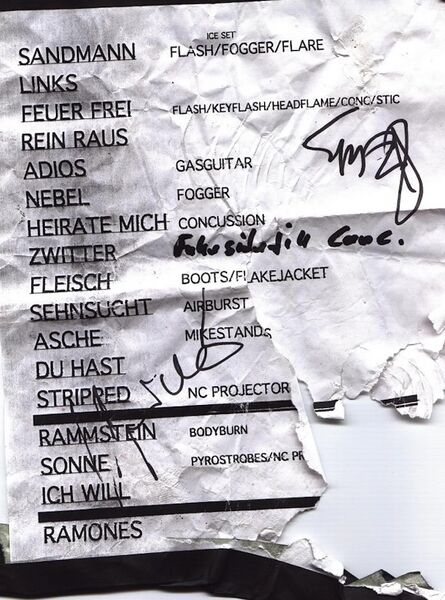 ICE SET
SANDMANN FLASH/FOGGER/FLARE
LINKS
FEUER FREI FLASH/KEYFLASH/HEADFLAME/CONC/STIC
REIN RAUS
ADIOS GASGUITAR
NEBEL FOGGER
HEIRATE MICH CONCUSSION
ZWITTER Conc.
FLEISCH BOOTS/FLAKEJACKET
SEHNSUCHT AIRBURST
ASCHE MIKESTANDS
DU HAST
STRIPPED NC PROJECTOR
RAMMSTEIN BODYBURN
SONNE PYROSTROBES/NC PR
ICH WILL
RAMONES